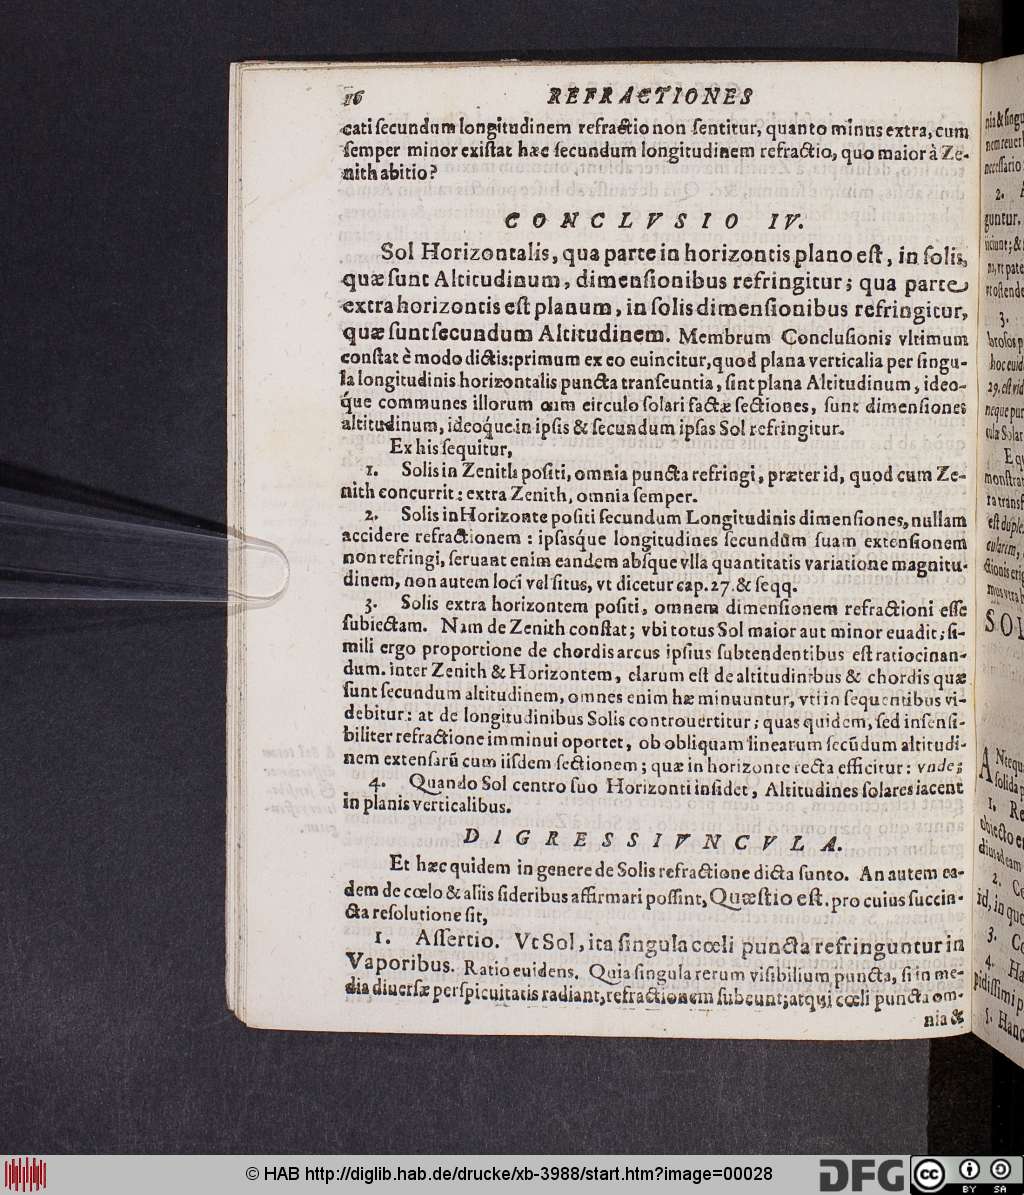 16 REFRACTIONES
cati ſecundum longitudinem refractio non ſentitur, quanto minus extra, cum
ſemper minor exiſtat hæc ſecundum longitudinem refractio, quo maior à Ze-
nith abitio?
CONCLVSIO IV.
Sol Horizontalis, qua parte in horizontis plano eſt, in ſolis,
quæ ſunt Altitudinum, dimenſionibus refringitur; qua parte
extra horizontis eſt planum, in ſolis dimenſionibus refringitur,
quæ ſunt ſecundum Altitudinem. Membrum Concluſionis vltimum
conſtat è modo dictis: primum ex eo euincitur, quod plana verticalia per ſingu-
la longitudinis horizontalis puncta tranſeuntia, ſint plana Altitudinum, ideo-
q́ue communes illorum cum circulo ſolari factæ ſectiones, ſunt dimenſiones
altitudinum, ideoq́ue in ipſis & ſecundum ipſas Sol refringitur.
Ex his ſequitur,
1. Solis in Zenith poſiti, omnia puncta refringi, præter id, quod cum Ze-
nith concurrit: extra Zenith, omnia ſemper.
2. Solis in Horizonte poſiti ſecundum Longitudinis dimenſiones, nullam
accidere refractionem: ipſasq́ue longitudines ſecundũm ſuam extenſionem
non refringi, ſeruant enim eandem abſque vlla quantitatis variatione magnitu-
dinem, non autem loci vel ſitus, vt dicetur cap. 27. & ſeqq.
3. Solis extra horizontem poſiti, omnem dimenſionem refractioni eſſe
ſubiectam. Nam de Zenith conſtat; vbi totus Sol maior aut minor euadit; ſi-
mili ergo proportione de chordis arcus ipſius ſubtendentibus eſt ratiocinan-
dum. inter Zenith & Horizontem, clarum eſt de altitudinibus & chordis quæ
ſunt ſecundum altitudinem, omnes enim hæ minuuntur, vti in ſequentibus vi-
debitur: at de longitudinibus Solis controuertitur; quas quidem, ſed inſenſi-
biliter refractione imminui oportet, ob obliquam linearum ſecũdum altitudi-
nem extenſarũ cum iiſdem ſectionem; quæ in horizonte recta efficitur: vnde;
4. Quando Sol centro ſuo Horizonti inſidet, Altitudines ſolares iacent
in planis verticalibus.
DIGRESSIVNCVLA.
Et hæc quidem in genere de Solis refractione dicta ſunto. An autem ea-
dem de cœlo & aliis ſideribus affirmari poſſint, Quæſtio eſt. pro cuius ſuccin-
cta reſolutione ſit,
1. Aſſertio. Vt Sol, ita ſingula cœli puncta refringuntur in
Vaporibus. Ratio euidens. Quia ſingula rerum viſibilium puncta, ſi in me-
dia diuerſæ perſpicuitatis radiant, refractionem ſubeunt; atqui cœli puncta om-
nia &
© HAB http://diglib.hab.de/drucke/xb-3988/start.htm?image=00028
DFG
cc BY SA